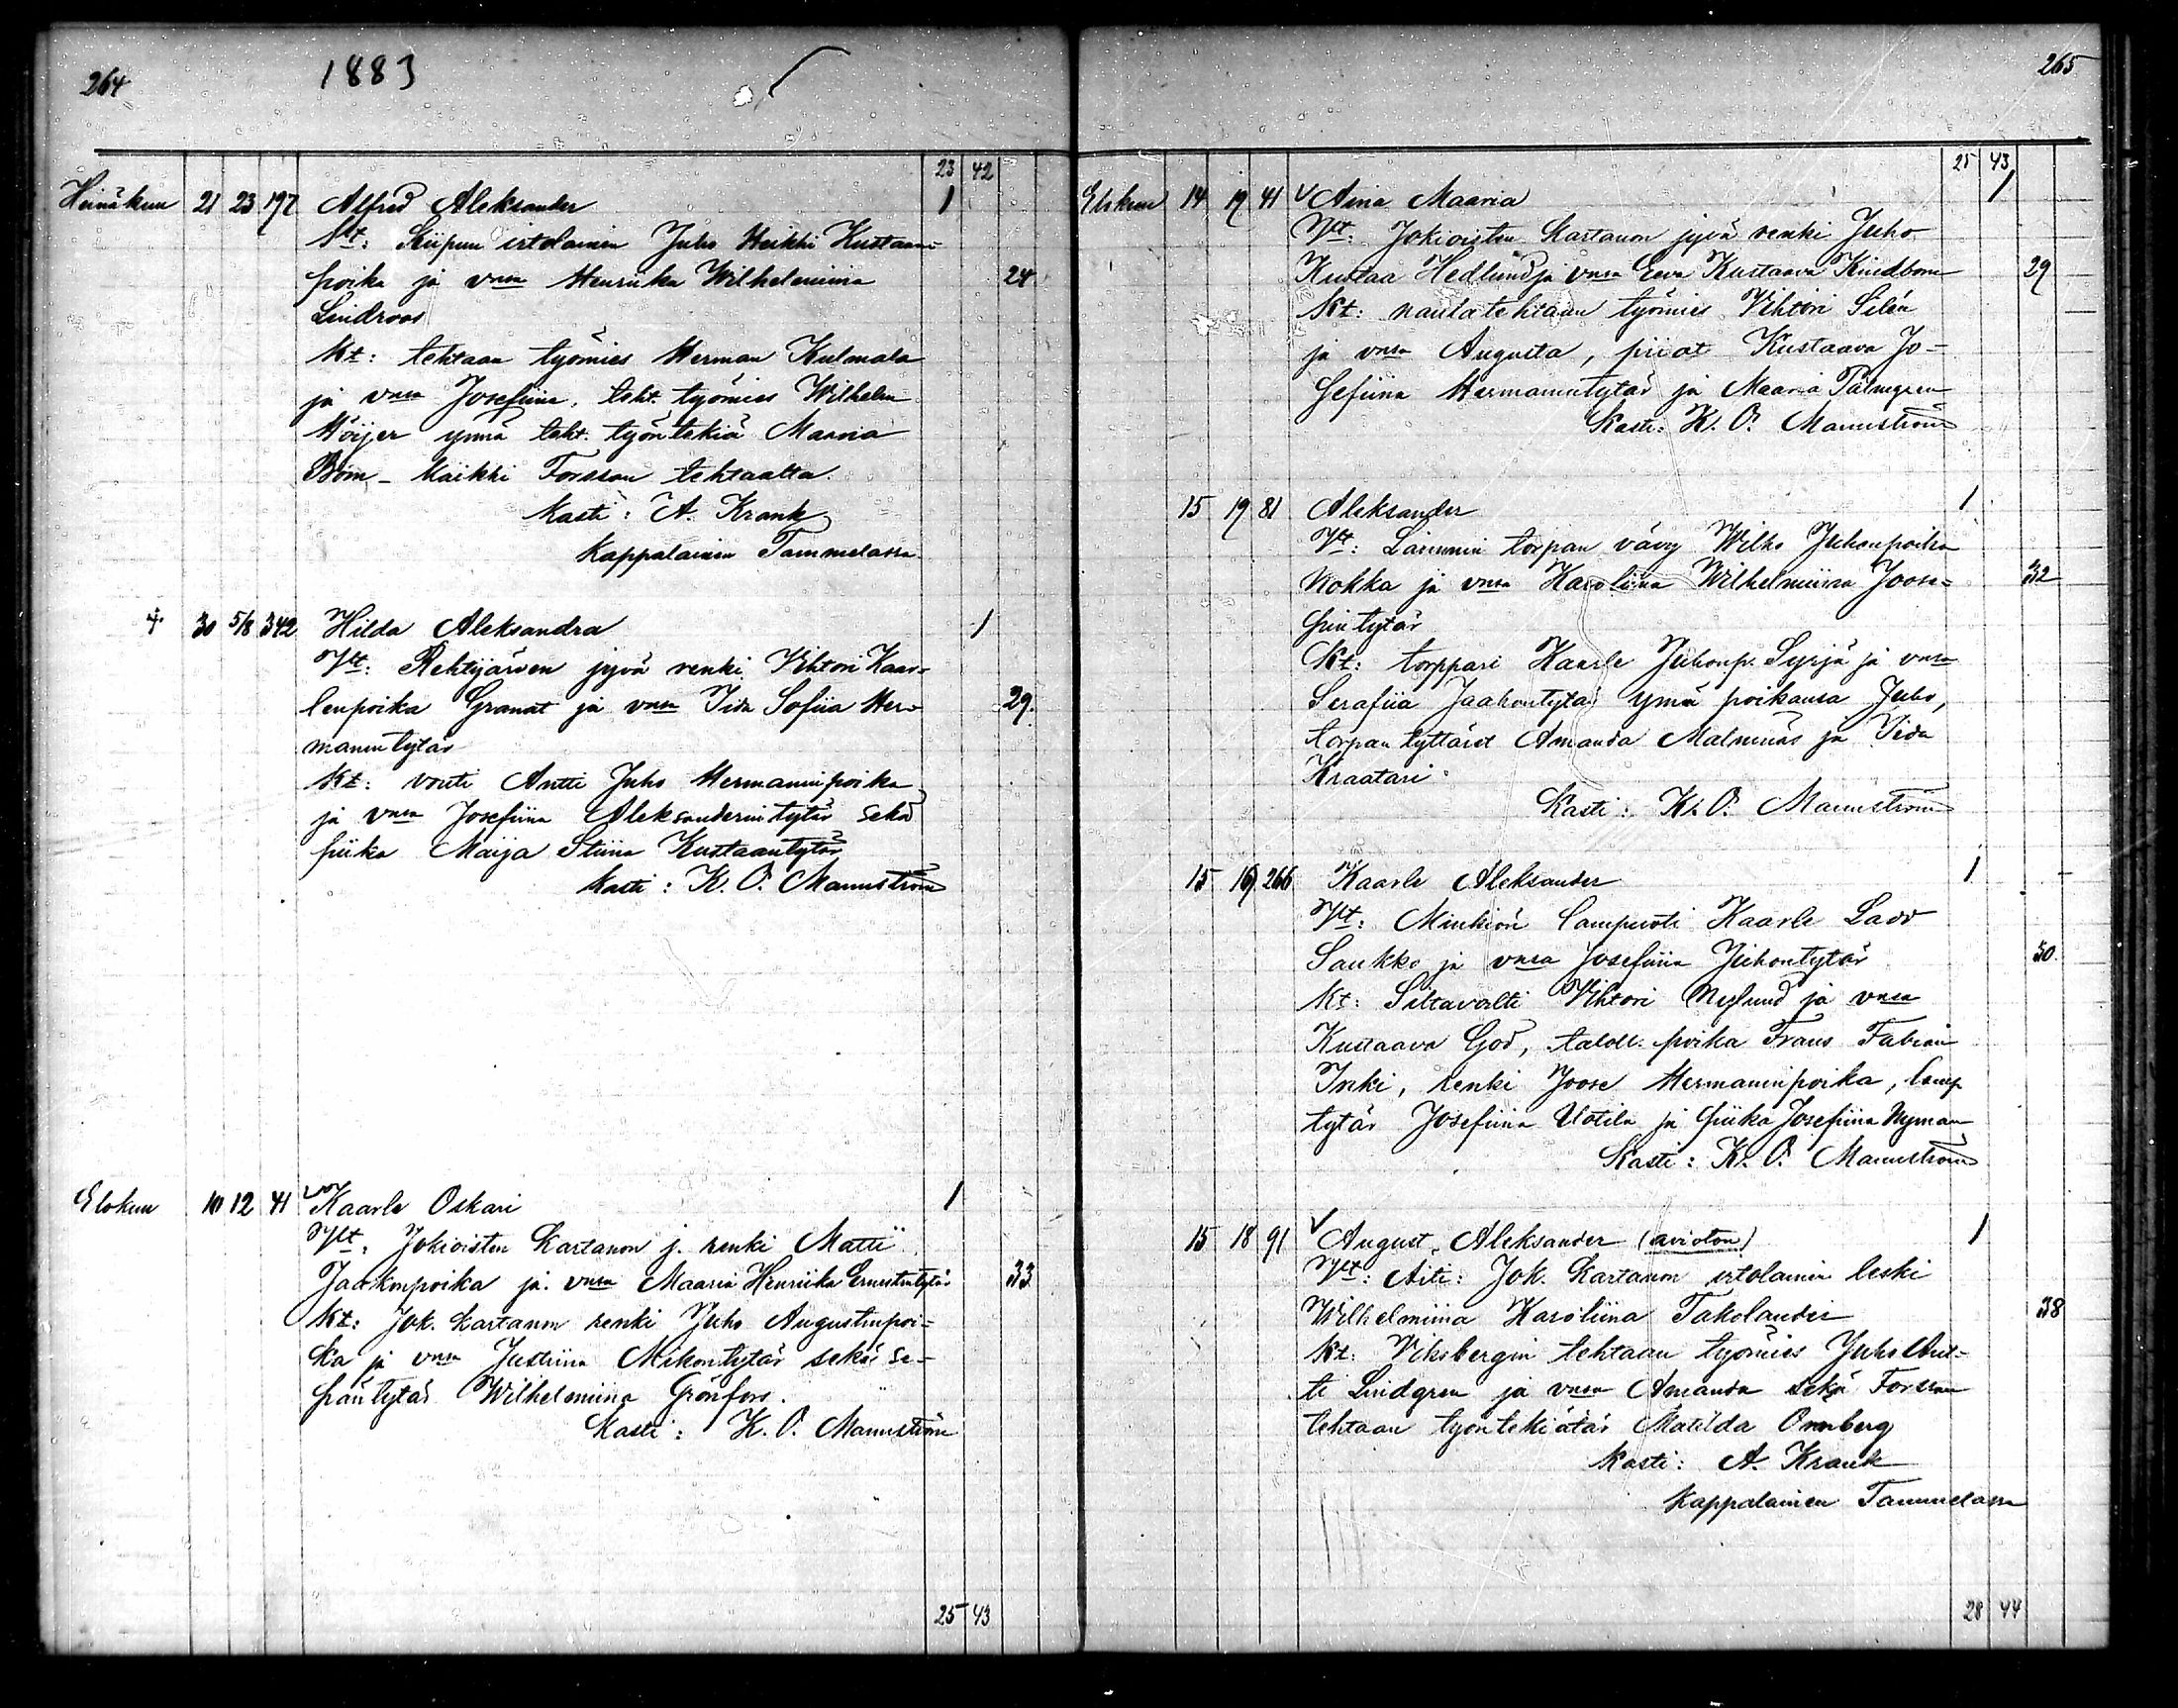 264
1883
23 42
Heinäkuu 21 23 197 Alfred Aleksander 1
Vt: Kiipuun irtolainen Juho Heikki Kustaan-
poika ja vmsa Henriika Wilhelmiina 24
Lindroos
Kt: tehtaan työmies Herman Kulmala
ja vmsa Josefiina, teht. työmies Wilhelm
Höijer ynnä teht. työntekiä Maaria
Böm - kaikki Forssan tehtaalta.
Kasti: A. Krank
Kappalainen Tammelassa
30 5/8 342 Hilda Aleksandra 1
Vt: Rehtijärven jyvä renki Vihtori Kaar-
lenpoika Granat ja vmsa Iida Sofiia Her- 29.
mannintytär
Kt: vouti Antti Juho Hermanninpoika
ja vmsa Josefiina Aleksanderintytär sekä
piika Maija Stiina Kustaantytär
Kasti: K. O. Mannström
Elokuu 10 12 41 Kaarle Oskari 1
Vt: Jokioisten Kartanon j. renki Matti
Jaakonpoika ja vmsa Maaria Henriika Ernestintytär 33
Kt: Jok. Kartanon renki Juho Augustinpoi-
ka ja vmsa Justiina Mikontytär sekä se-
päntytär Wilhelmiina Grönfors.
Kasti: K. O. Mannström
25 43
265
25 43
Elokuu 14 19 41 Aina Maaria 1
Vt: Jokioisten Kartanon jyvä renki Juho
Kustaa Hedlund ja vmsa Eeva Kustaava Kindbom 29
Kt: naulatehtaan työmies Vihtori Silén
ja vmsa Augusta, piiat Kustaava Jo-
sefiina Hermannintytär ja Maaria Palmgren
Kasti: K. O. Mannström
15 19 81 Aleksander 1
Vt: Lammin torpan vävy Wilho Juhonpoika
Kokka ja vmsa Karoliina Wilhelmiina Joose- 32
pintytär
Kt: torppari Kaarle Juhonp. Syrjä ja vmsa
Serafiia Jaakontytär ynnä poikansa Juho,
torpan tyttäret Amanda Malmnäs ja Iida
Kraatari.
Kasti: K. O. Mannström
15 19 266 Kaarle Aleksander 1
Vt: Minkiön lampuoti Kaarle Law
Saukko ja vmsa Josefiina Juhontytär 30.
Kt: Siltavolti Vihtori Nylund ja vmsa
Kustaava God, taloll. poika Frans Fabian
Inki, renki Joose Hermanninpoika, lamp
tytär Josefiina Uotila ja piika Josefiina Nyman
Kasti: K. O. Mannström
15 18 91 August Aleksander (avioton) 1
Vt: Äiti: Jok. Kartanon irtolainen leski
Wilhelmiina Karoliina Takolander 38
Kt: Viksbergin tehtaan työmies Juho Ant-
ti Lindgren ja vmsa Amanda sekä Forssan
tehtaan työntekiätär Matilda Ornberg
Kasti: A. Krank
Kappalainen Tammelassa
28 44